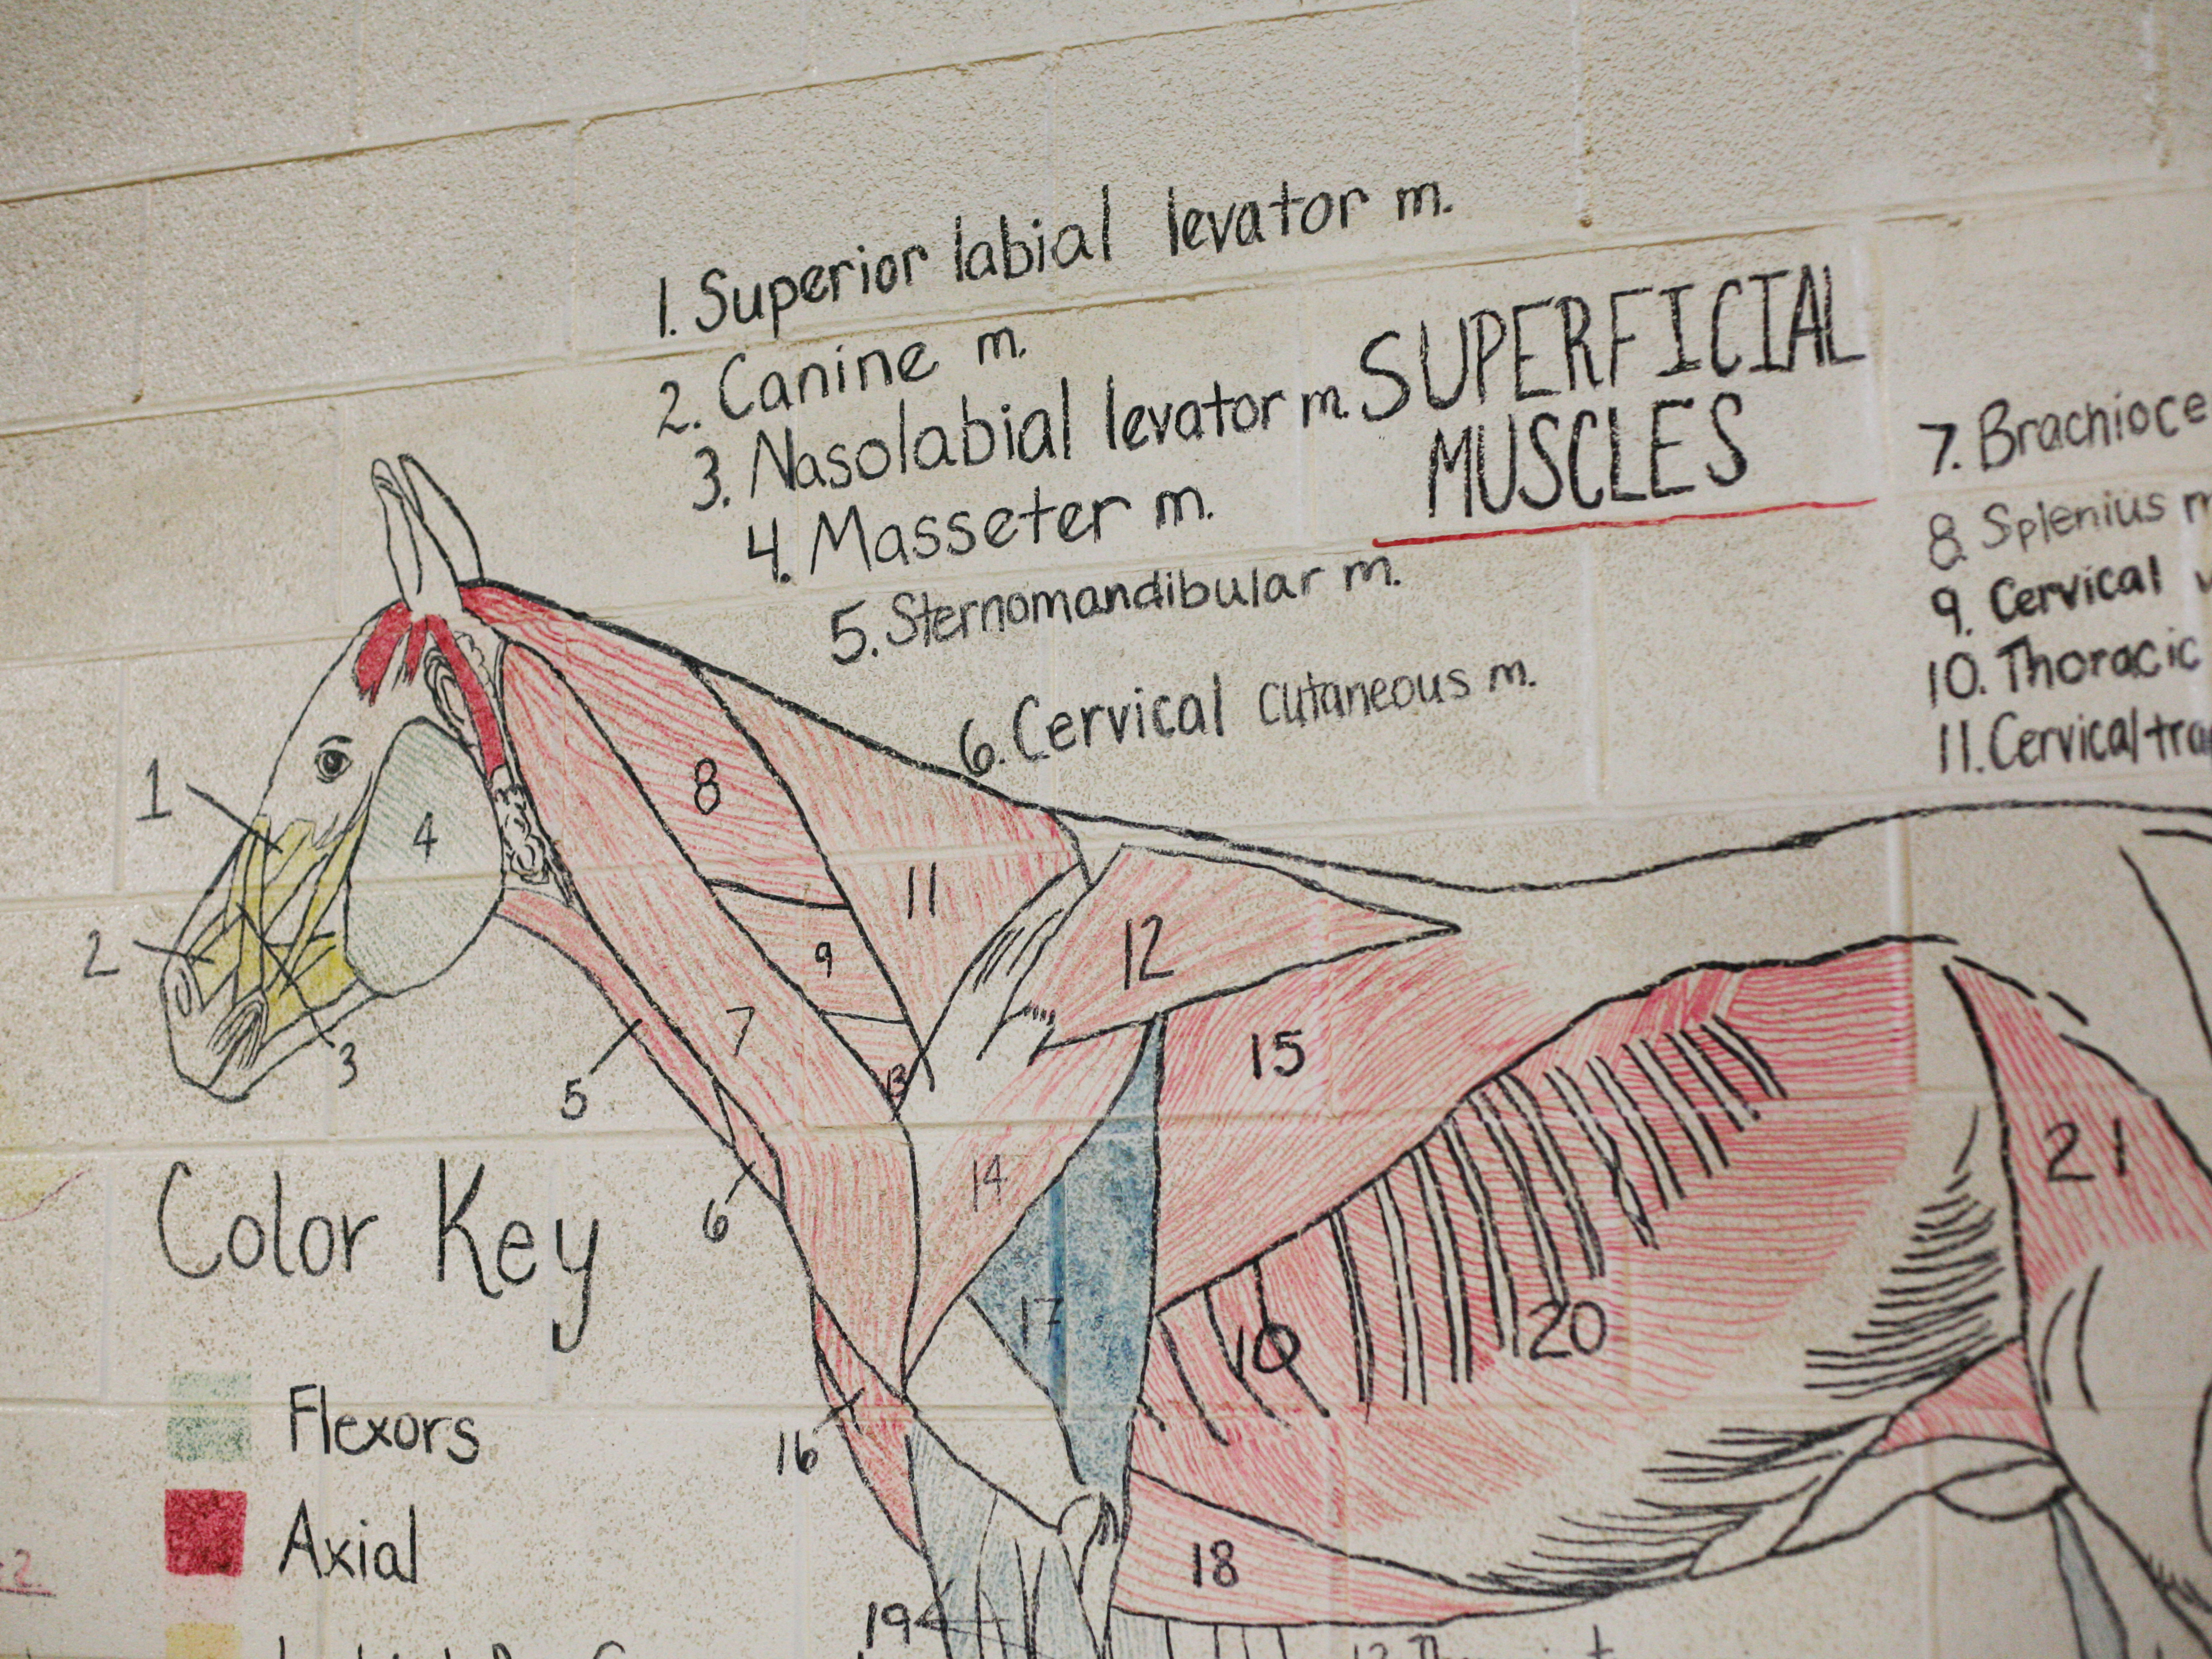 1. Superior labial levator m.
2. Canine m.
3. Nasolabial levator m.
4. Masseter m.
5. Sternomandibular m.
6. Cervical cutaneous m.
SUPERFICIAL
MUSCLES
7. Brachioce
8. Splenius m
9. Cervical
10. Thoracic
11. Cervical tra
1
2
3
4
5
6
7
8
9
11
12
13
14
15
16
17
18
19
20
21
Color Key
Flexors
Axial